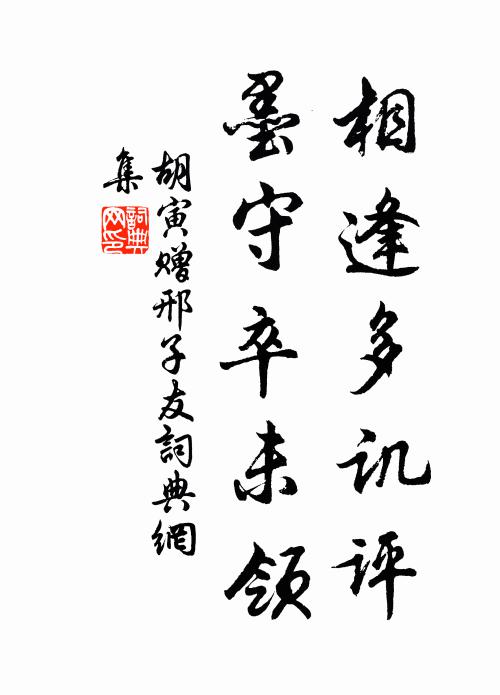 相逢多讥评
墨守卒未领
胡寅赠邢子友詞典網
集
詞典
网印